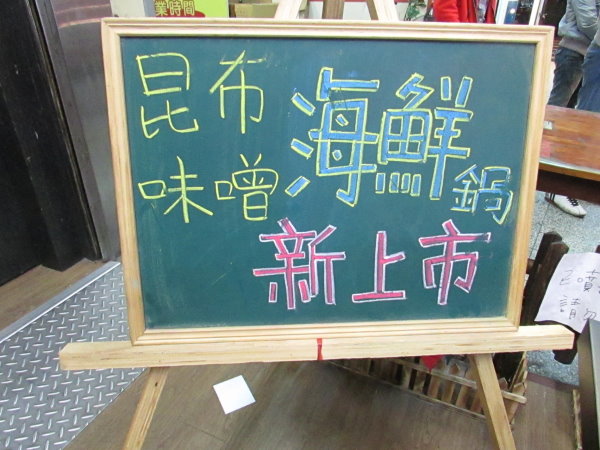 業時間
昆布
味噌
海鮮鍋
新上市